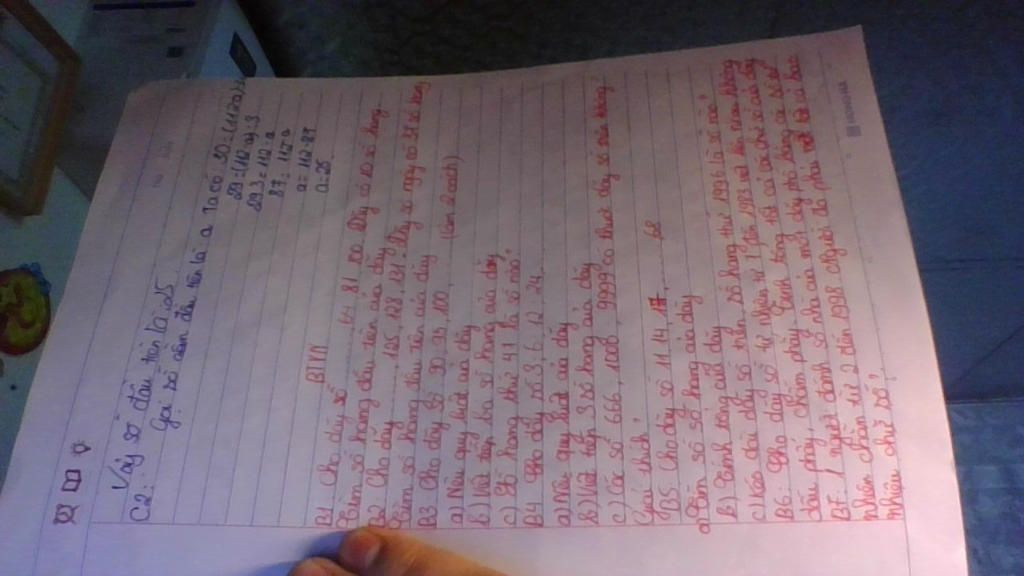 Vậy số đầu tiên là 25
C2: Gọi số cần tìm là a Ta có 30 = (112-a):3+1
29 = (112-a):3
29.3 = 112-a
87 = 112-a
a = 112-87
a = 25
BTVN
B1 Cho dãy số 64, 81, 100 Dãy có 10 số hạng
Tìm số hạng đầu tiên của dãy
B2 Cho dãy 125, 128, 131 Dãy số này có 31 số hạng
Tìm số hạng đầu tiên của dãy
B3 Cho dãy số 90, 95, 100, (làm 2 cách)
a) Nêu quy luật của dãy
b) Viết tiếp ba số hạng của dãy
c) Số hạng thứ 41 là số nào?
B4 Cho dãy số 3, 6, 12, 24,
a) Nêu quy luật của dãy
b) Viết tiếp 3 số hạng của dãy
c) Các số 666, 1000, 9999 có thuộc dãy số trên không?
Giải thích?
B5 Cho dãy số 11 14 17, 68
a) Tìm số số hạng của dãy
b) Tính tổng của dãy
c) Kéo dài dãy số trên, số hạng thứ 1996 là số nào?
B6 Cho dãy số tự nhiên từ 1 đến 1983 viết liền nhau không
dấu phẩy, chấm phẩy Tính tổng tất cả các chữ số của dãy
B7: 1 người đánh số nhà của một dãy phố bằng các số tự
nhiên chẵn từ 2 đến 1998 Người đó phải viết tất cả bao
nhiêu chữ số?